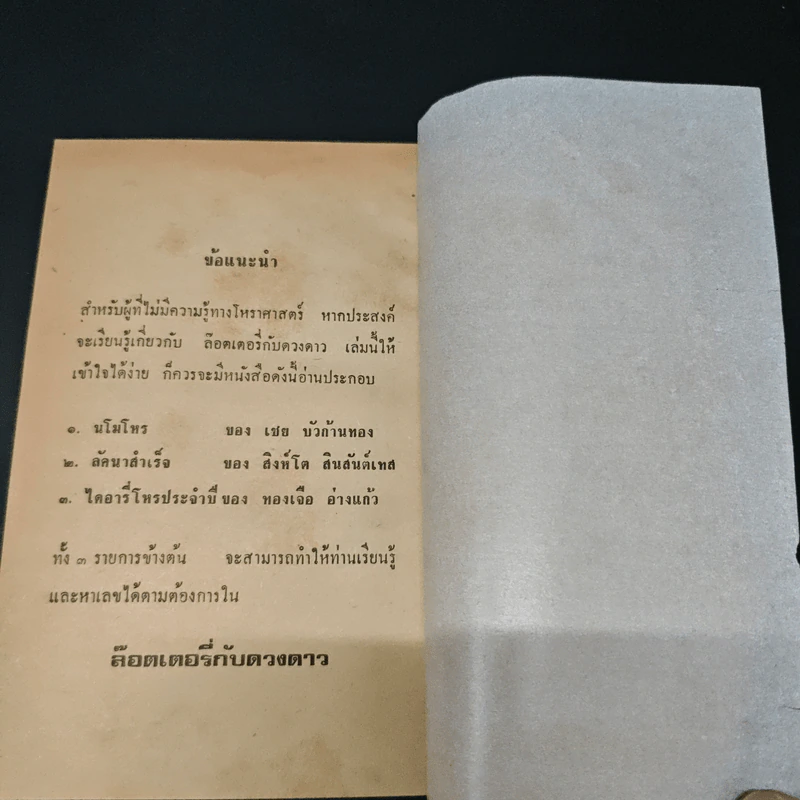 ข้อแนะนำ
สำหรับผู้ที่ไม่มีความรู้ทางโหราศาสตร์ หากประสงค์
จะเรียนรู้เกี่ยวกับ ล๊อตเตอรี่กับดวงดาว เล่มนี้ให้
เข้าใจได้ง่าย ก็ควรจะมีหนังสือดังนี้อ่านประกอบ
๑. นโมโหร ของ เชย บัวก้านทอง
๒. ลัคนาสำเร็จ ของ สิงห์โต สินสันต์เทส
๓. ไดอารี่โหรประจำปี ของ ทองเจือ อ่างแก้ว
ทั้ง ๓ รายการข้างต้น จะสามารถทำให้ท่านเรียนรู้
และหาเลขได้ตามต้องการใน
ล๊อตเตอรี่กับดวงดาว